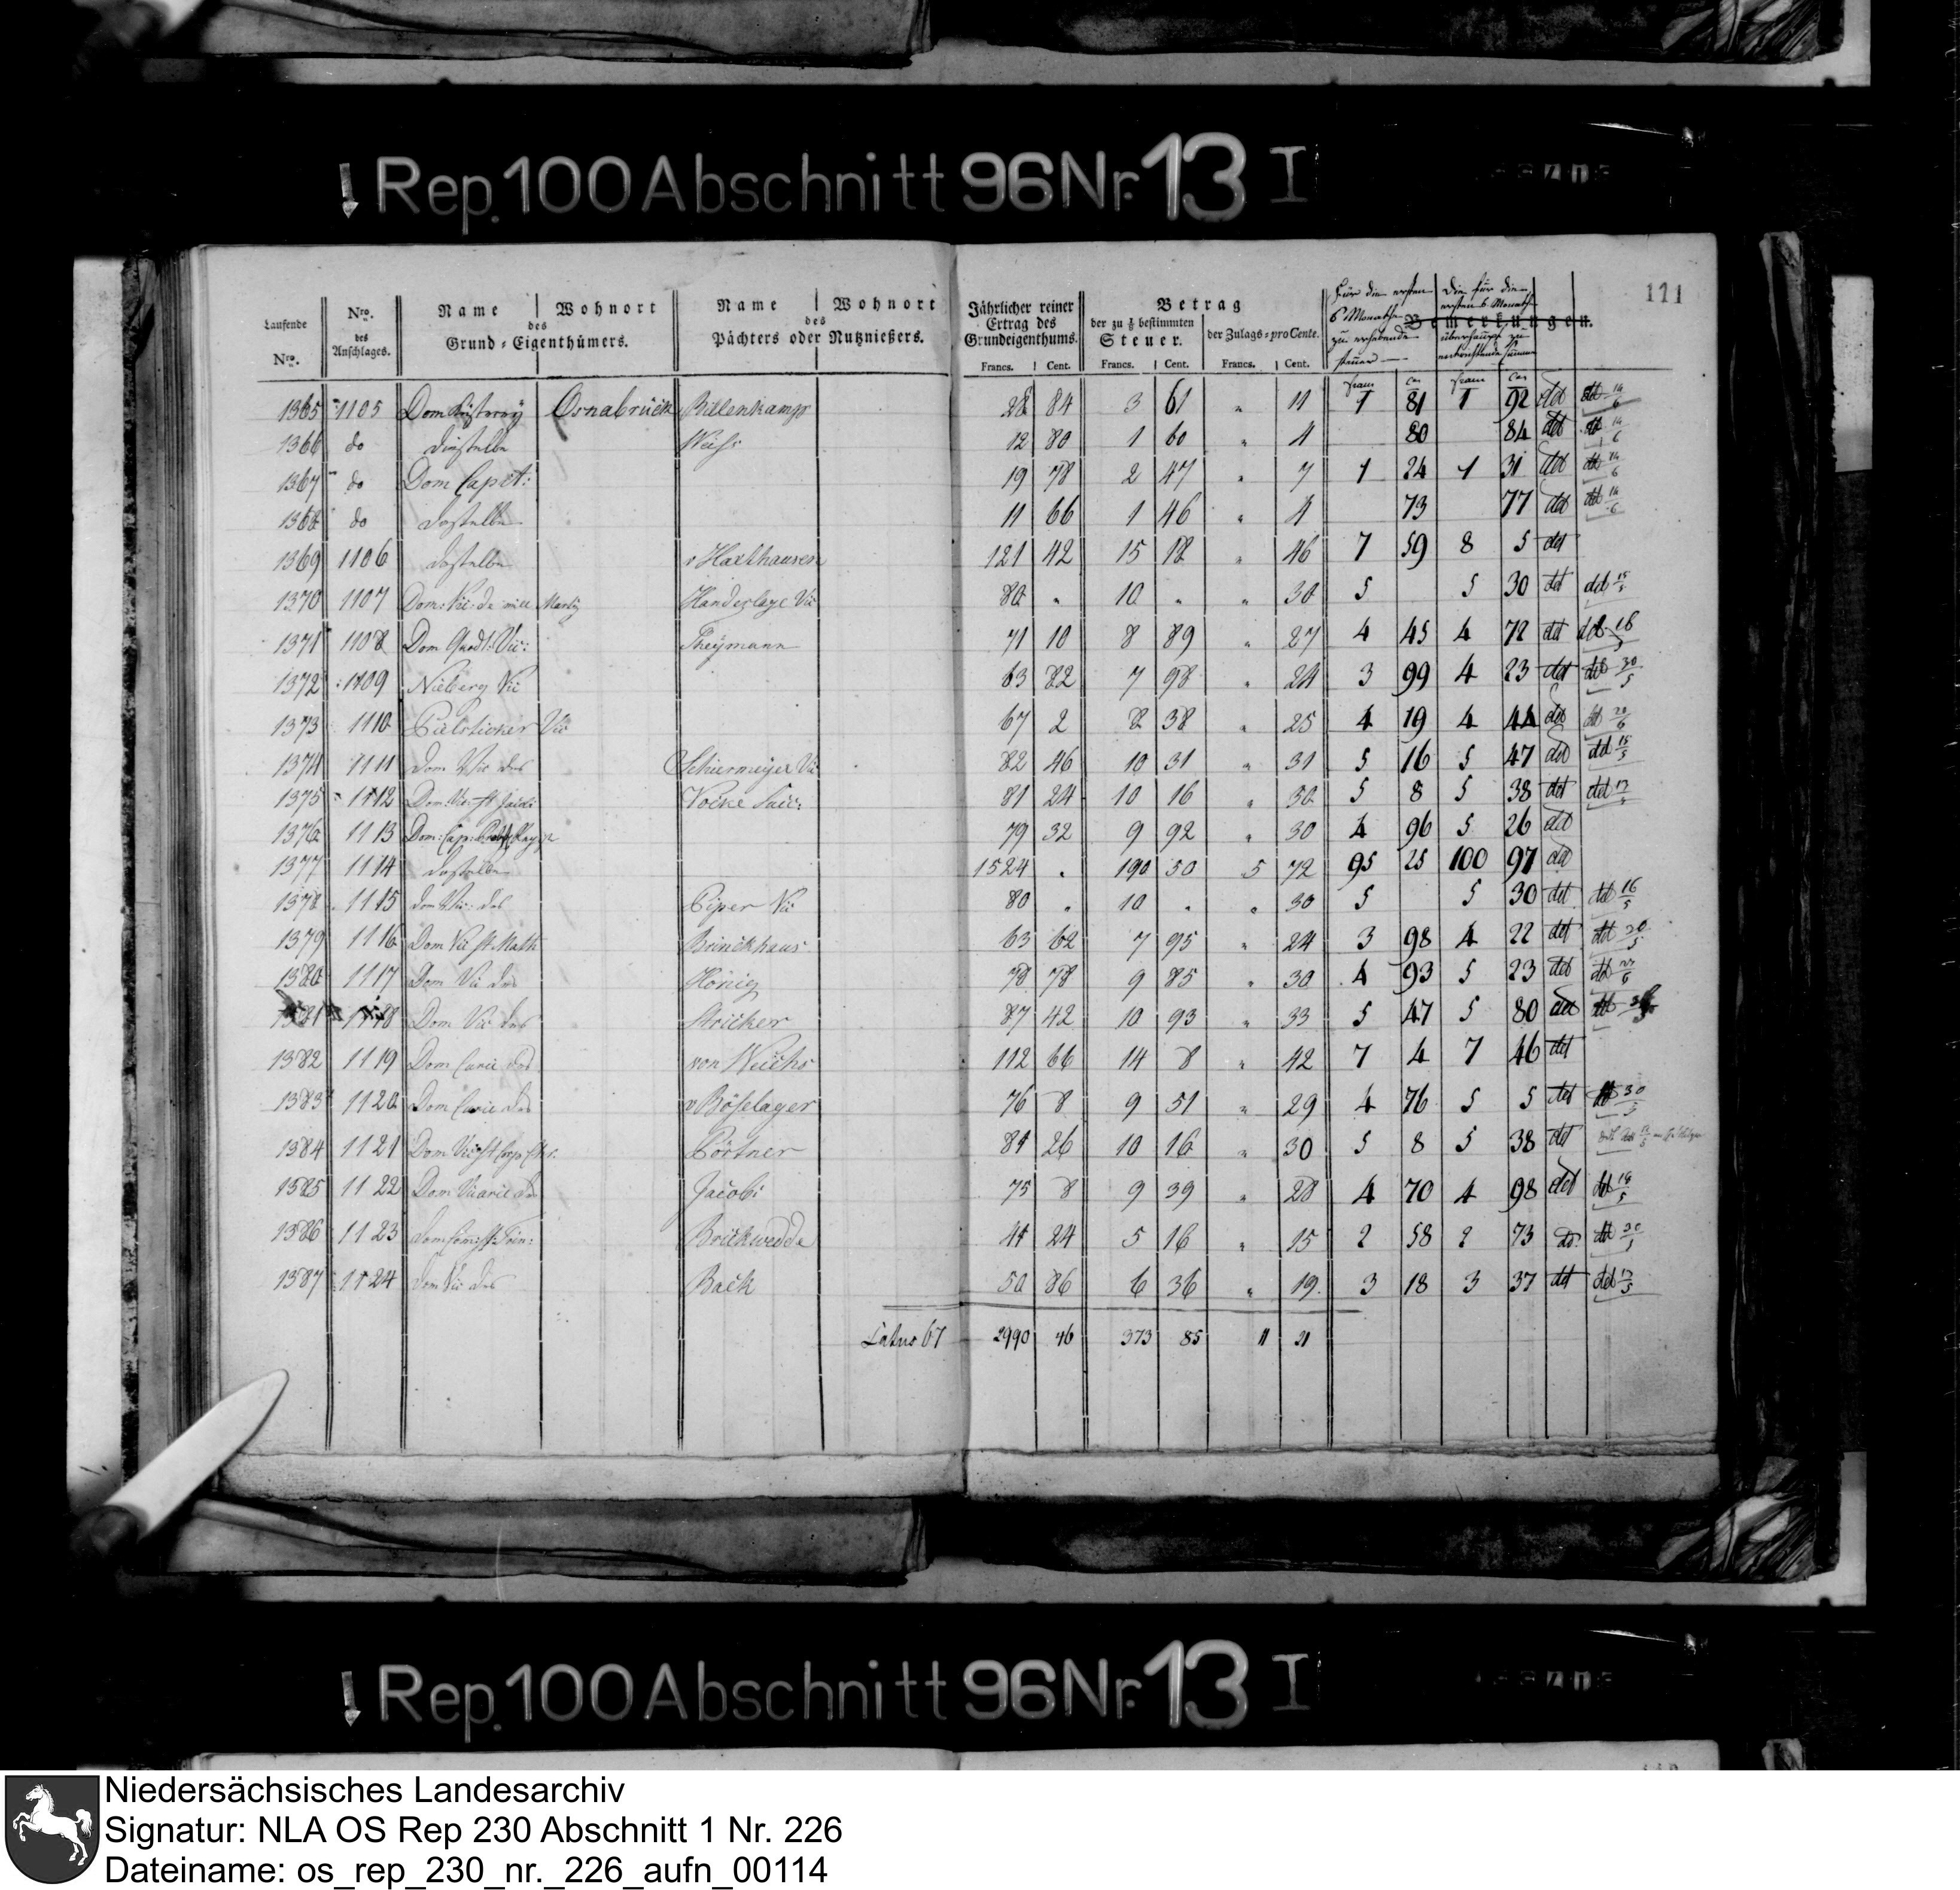 Rep. 100 Abschnitt 96 Nr. 13 I
111
Laufende Nro.
Nro. des Anschlages.
Name Wohnort des Grund-Eigenthümers.
Name Wohnort des Pächters oder Nutznießers.
Jährlicher reiner Ertrag des Grundeigenthums. Francs. Cent.
Betrag
der zu 1/8 bestimmten Steuer. Francs. Cent.
der Zulags-proCente. Francs. Cent.
Für die ersten 6 Monathe zu erhebende Steuer
Die für die ersten 6 Monathe überhaupt zu entrichtende Summe
Bemerkungen.
1365 1105 Dom Osnabrück Billenkamp 28 84 3 61 " 11 1 81 1 92 ddt ddt 14/6
1366 do dieselbe 12 80 1 60 " 4 80 84 ddt ddt 14/6
1367 do Dom Capit: 19 78 2 47 " 7 1 24 1 31 ddt ddt 14/6
1368 do dasselbe 11 66 1 46 " 4 73 77 ddt ddt 14/6
1369 1106 dasselbe v Haxthausen 121 42 15 18 " 46 7 59 8 5 ddt
1370 1107 Dom: Vic: Handeslage Vic 80 " 10 " " 30 5 5 30 ddt ddt 15/5
1371 1108 Dom Vic: Theymann 71 10 8 89 " 27 4 45 4 72 ddt ddt 16/5
1372 1109 Nieberg Vic 63 82 7 98 " 24 3 99 4 23 ddt ddt 30/5
1373 1110 Pielsticker Vic 67 2 8 38 " 25 4 19 4 44 ddt ddt 20/6
1374 1111 Dom Vic das Schiermeyer Vic 82 46 10 31 " 31 5 16 5 47 ddt ddt 15/5
1375 1112 Dom Vic: St Jacobi Vocke 81 24 10 16 " 30 5 8 5 38 ddt ddt
1376 1113 Dom: Cap: 79 32 9 92 " 30 4 96 5 26 ddt
1377 1114 dasselbe 1524 . 190 50 5 72 95 25 100 97 ddt
1378 1115 dom Vic: das Piper Vic 80 " 10 " " 30 5 5 30 ddt ddt 16/5
1379 1116 Dom Vic St. Math Brinckhaus 63 62 7 95 " 24 3 98 4 22 ddt ddt 20/5
1380 1117 Dom Vic das Hönig 78 78 9 85 " 30 4 93 5 23 ddt ddt
1381 1118 Dom Vic das Stricker 87 42 10 93 " 33 5 47 5 80 ddt ddt
1382 1119 Dom Curie das von Weichs 112 66 14 8 " 42 7 4 7 46 ddt
1383 1120 Dom Curie das v Böselager 76 8 9 51 " 29 4 76 5 5 ddt ddt 30/5
1384 1121 Dom Vic St Corp Chr. Pörtner 81 26 10 16 " 30 5 8 5 38 ddt
1385 1122 Dom Vicarie das Jacobi 75 8 9 39 " 28 4 70 4 98 ddt ddt 14/5
1386 1123 Brickwedde 41 24 5 16 " 15 2 58 2 73 do. ddt 30/5
1387 1124 dom Vic das Back 50 86 6 36 " 19 3 18 3 37 ddt ddt
Latus 67 2990 46 373 85 11 21
Rep. 100 Abschnitt 96 Nr. 13 I
Niedersächsisches Landesarchiv
Signatur: NLA OS Rep 230 Abschnitt 1 Nr. 226
Dateiname: os_rep_230_nr._226_aufn_00114